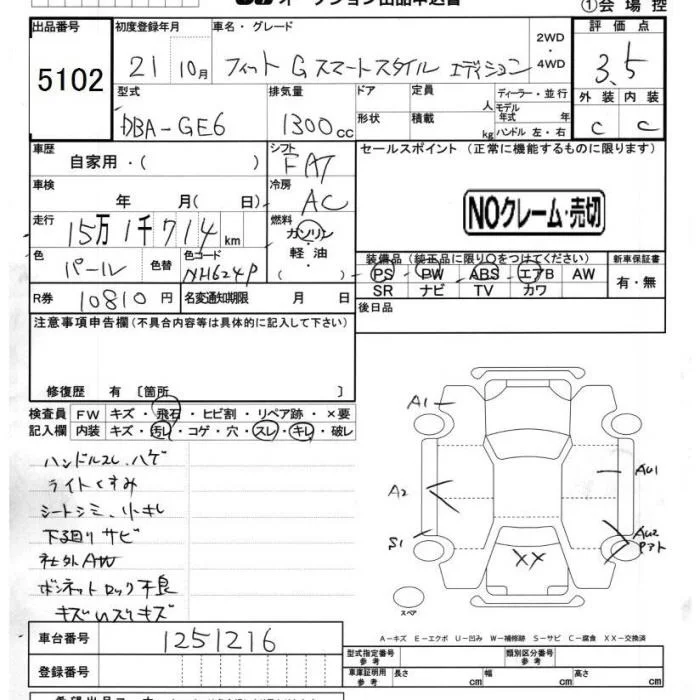 ①会場控
出品番号
5102
初度登録年月
21 10月
車名・グレード
フィット G スマートスタイル エディション
2WD
・
4WD
評価点
3.5
外装 内装
C C
型式
DBA-GE6
排気量
1300cc
ドア
定員
人
ディーラー・並行
モデル
年式 年
形状
積載
kg
ハンドル 左・右
車歴
自家用・( )
シフト
FAT
セールスポイント (正常に機能するものに限ります)
NOクレーム・売切
車検
年 月( 日)
冷房
AC
走行
15万1千714km
燃料
ガソリン
軽油
( )
色
パール
色替
色コード
NH624P
装備品(純正品に限り○をつけてください)
PS PW ABS エアB AW
SR ナビ TV カワ
新車保証書
有・無
R券
10810円
名変通知期限 月 日
後日品
注意事項申告欄(不具合内容等は具体的に記入して下さい)
修復歴 有 〔箇所 〕
検査員
記入欄
FW キズ・飛石・ヒビ割・リペア跡・×要
内装 キズ・汚レ・コゲ・穴・スレ・キレ・破レ
ハンドルスレ、ハゲ
ライトくすみ
シートシミ、小キレ
下廻りサビ
社外AW
ボンネットロック不良
キズ
スリキズ
A1
A2
S1
AU1
AU2
XX
スペア
A-キズ E-エクボ U-凹み W-補修跡 S-サビ C-腐食 XX-交換済
車台番号
1251216
登録番号
型式指定番号
参考
類別区分番号
参考
車庫証明用
参考
長さ cm
幅 cm
高さ cm